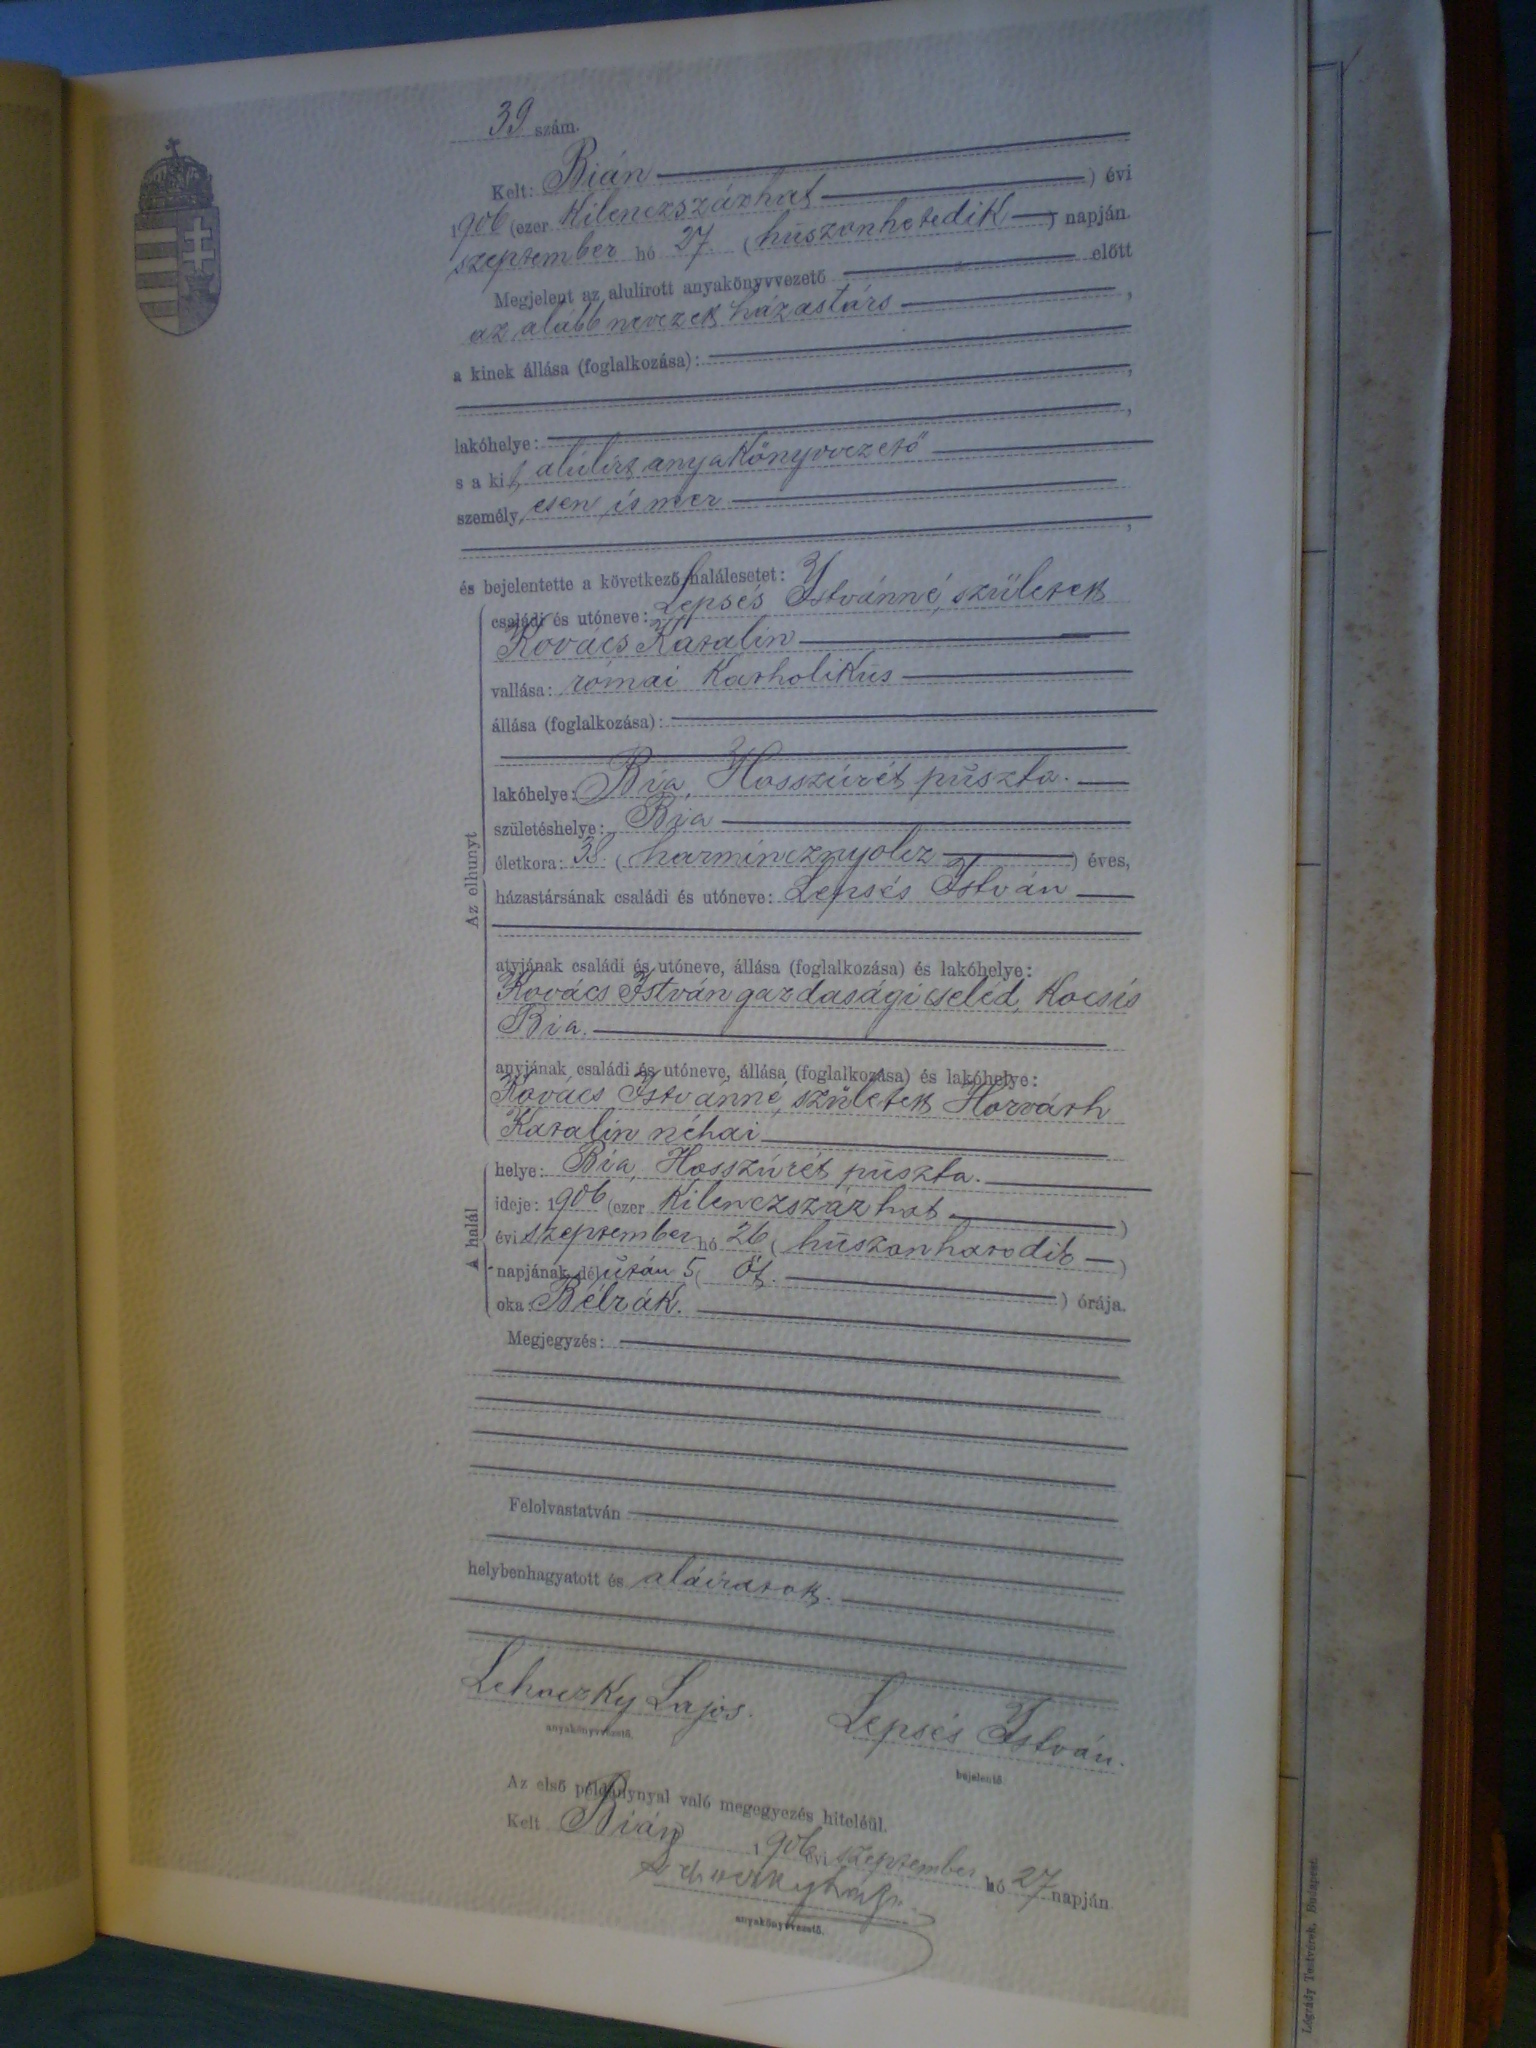 39 szám.
Kelt: Bián
1906 (ezer kilenczszázhat ) évi
szeptember hó 27. (huszonhetedik ) napján.
Megjelent az alulírott anyakönyvvezető előtt
az alább nevezett házastárs ,
a kinek állása (foglalkozása):
,
lakóhelye: ,
s a kit alulírt anyakönyvvezető
személyesen ismer
,
és bejelentette a következő halálesetet:
családi és utóneve: Lepsés Istvánné, született
Kovács Katalin
vallása: római katholikus
állása (foglalkozása):
lakóhelye: Bia, Hosszúrét puszta.
születéshelye: Bia
életkora: 38. (harmincznyolcz ) éves,
házastársának családi és utóneve: Lepsés István
Az elhunyt
atyjának családi és utóneve, állása (foglalkozása) és lakóhelye:
Kovács István gazdasági cseléd, kocsis
Bia.
anyjának családi és utóneve, állása (foglalkozása) és lakóhelye:
Kovács Istvánné, született Horváth
Katalin néhai
A halál
helye: Bia, Hosszúrét puszta.
ideje: 1906 (ezer kilenczszázhat )
évi szeptember hó 26 (huszonhatodik )
napjának délután 5 ( öt. ) órája.
oka: Bélrák.
Megjegyzés:
Felolvastatván
helybenhagyatott és aláíratott.
Lehoczky Lajos.
anyakönyvvezető.
Lepsés István.
bejelentő.
Az első példánynyal való megegyezés hiteléül.
Kelt Bián 1906 évi szeptember hó 27 napján
anyakönyvvezető.
Légrády Testvérek, Budapest.